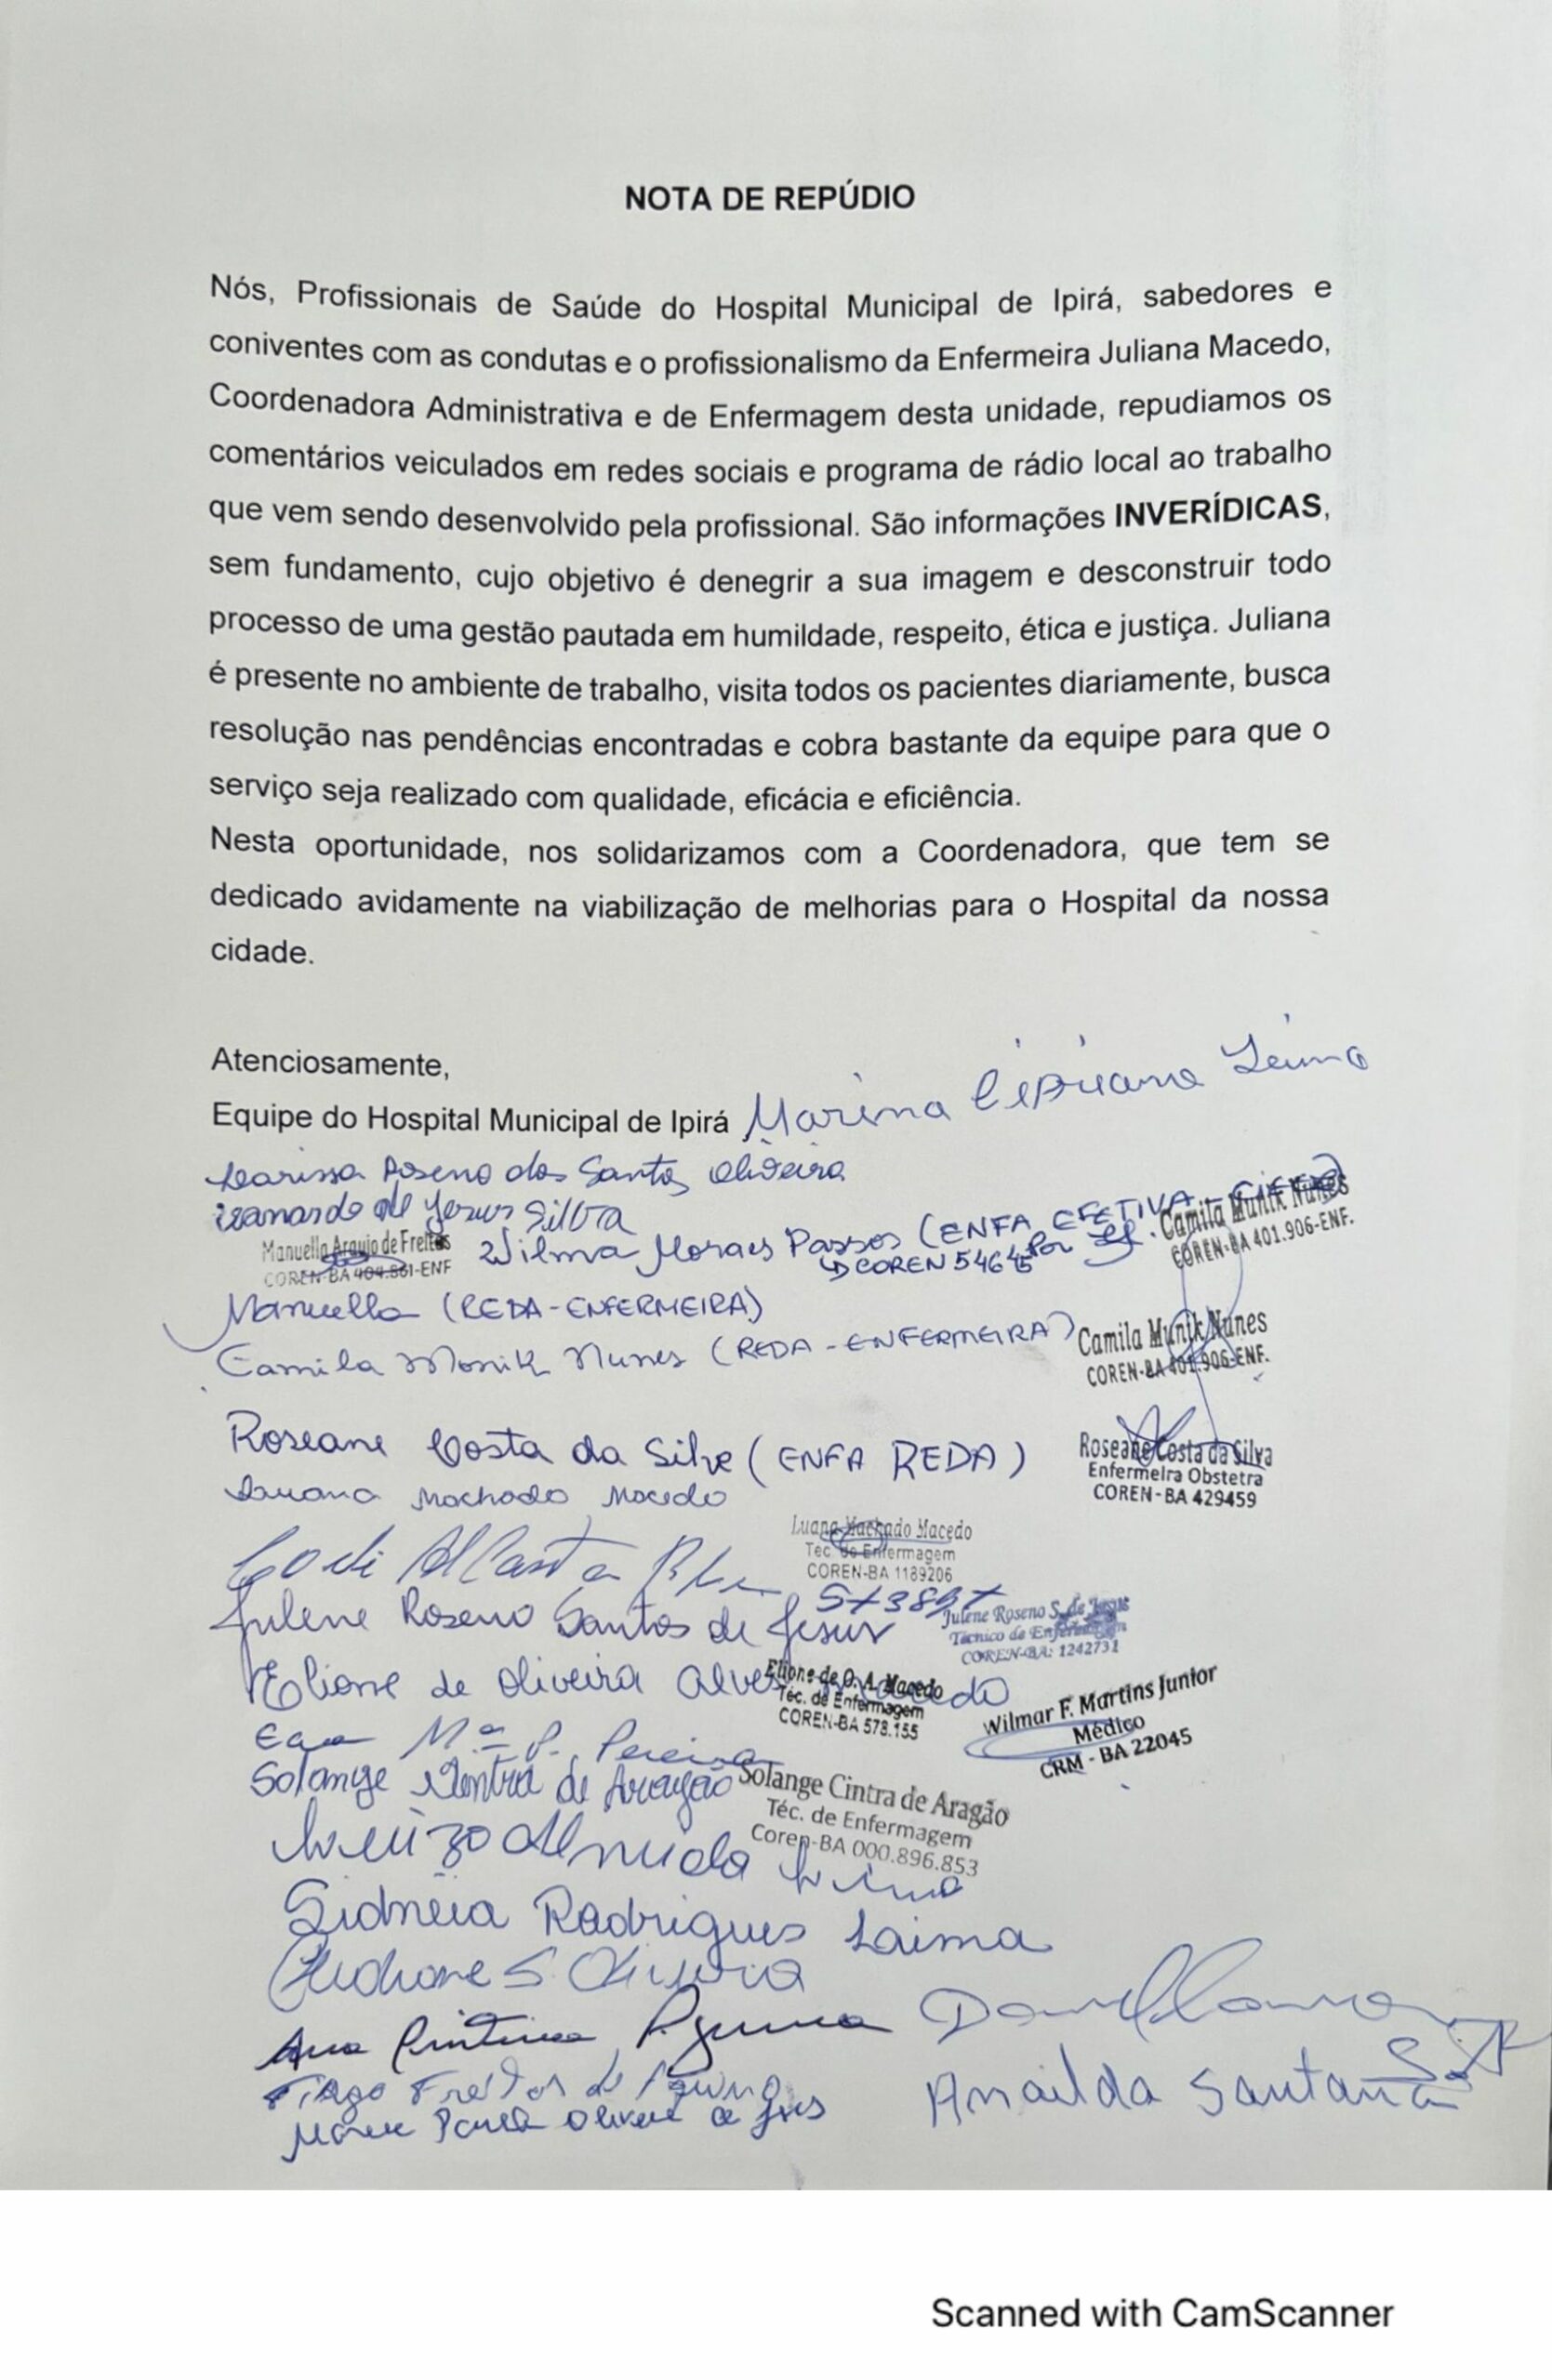 NOTA DE REPÚDIO
Nós, Profissionais de Saúde do Hospital Municipal de Ipirá, sabedores e
coniventes com as condutas e o profissionalismo da Enfermeira Juliana Macedo,
Coordenadora Administrativa e de Enfermagem desta unidade, repudiamos os
comentários veiculados em redes sociais e programa de rádio local ao trabalho
que vem sendo desenvolvido pela profissional. São informações INVERÍDICAS,
sem fundamento, cujo objetivo é denegrir a sua imagem e desconstruir todo
processo de uma gestão pautada em humildade, respeito, ética e justiça. Juliana
é presente no ambiente de trabalho, visita todos os pacientes diariamente, busca
resolução nas pendências encontradas e cobra bastante da equipe para que o
serviço seja realizado com qualidade, eficácia e eficiência.
Nesta oportunidade, nos solidarizamos com a Coordenadora, que tem se
dedicado avidamente na viabilização de melhorias para o Hospital da nossa
cidade.
Atenciosamente,
Equipe do Hospital Municipal de Ipirá Marina Cipriana
Larissa Roseno dos Santos Oliveira
de Jesus Silva
Manuella Araujo de Freitas
COREN-BA 404.861-ENF
Wilma Moraes Passos (ENFA EFETIVA
COREN 54645
Camila Munik Nunes
COREN-BA 401.906-ENF.
Manuella (REDA-ENFERMEIRA)
Camila Monik Nunes (REDA-ENFERMEIRA)
Camila Munik Nunes
COREN-BA 401.906-ENF.
Roseane Costa da Silva (ENFA REDA)
Roseane Costa da Silva
Enfermeira Obstetra
COREN-BA 429459
Luana Machado Macedo
Luana Machado Macedo
Tec. de Enfermagem
COREN-BA 1189206
Julene Roseno Santos de Jesus
Julene Roseno S. de Jesus
Técnico de Enfermagem
COREN-BA: 1242731
Elione de Oliveira Alves Macedo
Elione de O. A. Macedo
Téc. de Enfermagem
COREN-BA 578.155
Wilmar F. Martins Junior
Médico
CRM - BA 22045
Mª P. Pereira
Solange Cintra de Aragão
Solange Cintra de Aragão
Téc. de Enfermagem
Coren-BA 000.896.853
Almeida
Sidneia Rodrigues
S. Oliveira
Ana
Tiago Freitas de
Anailda Santana
Scanned with CamScanner